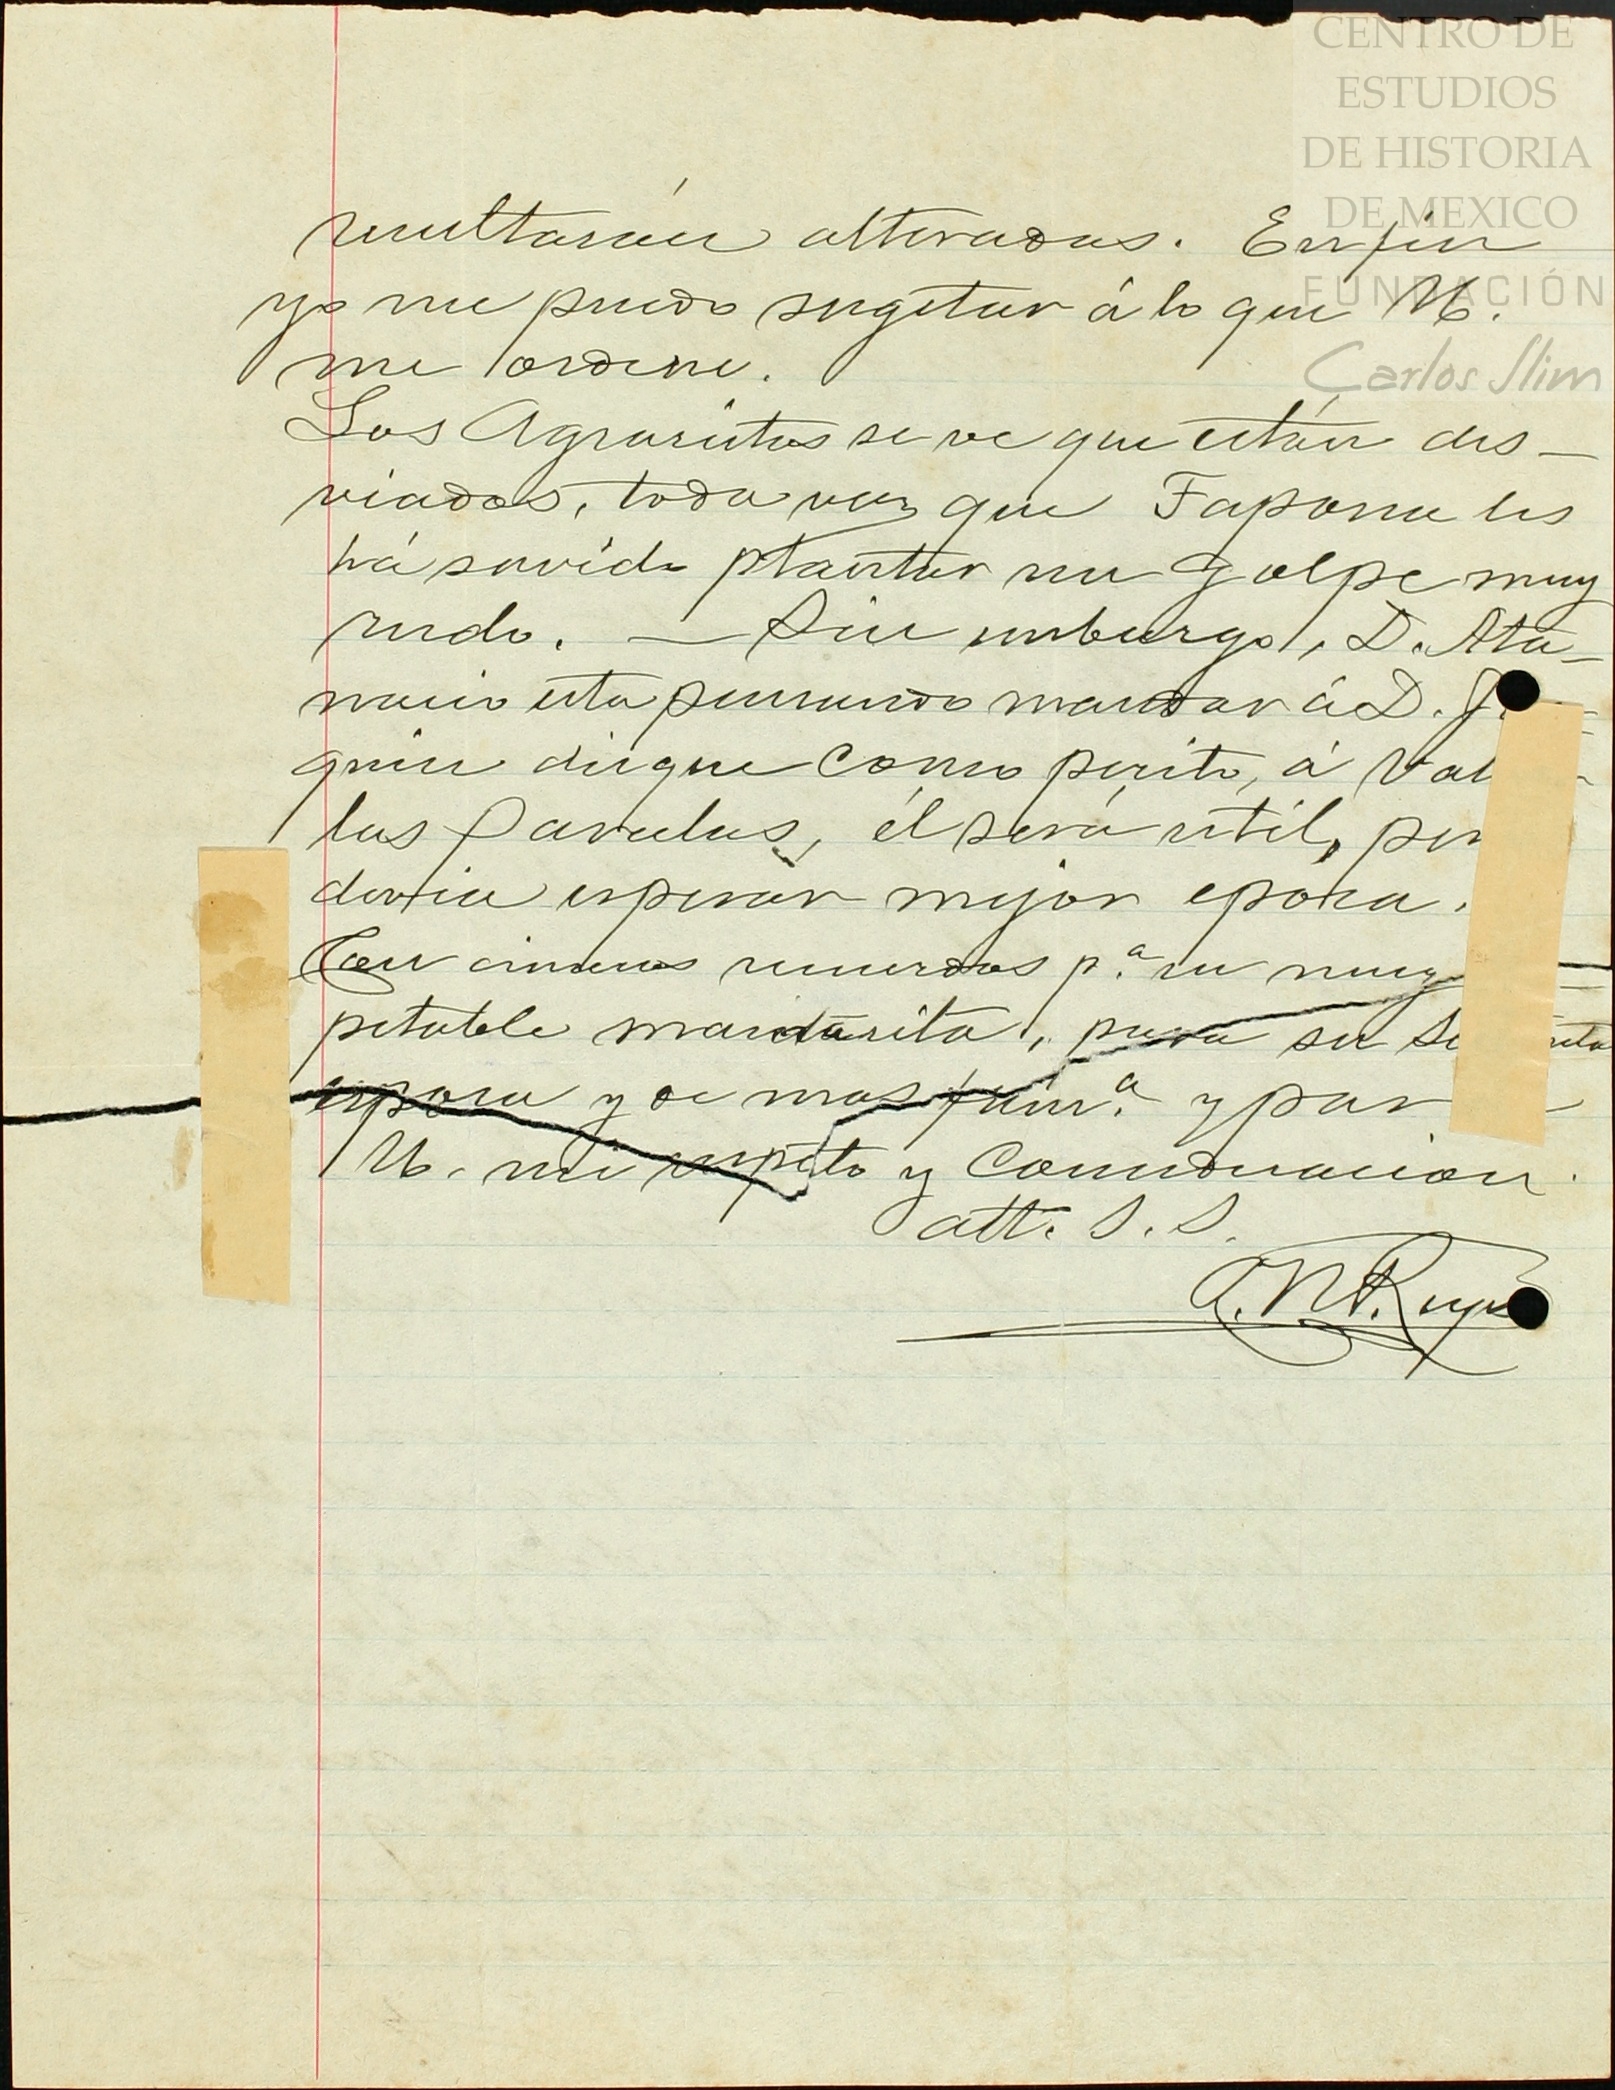 CENTRO DE
ESTUDIOS
DE HISTORIA
DE MEXICO
FUNDACIÓN
Carlos Slim
resultarán alteradas. En fin
yo me puedo sugetar á lo que U.
me ordene.
Los Agraristas se ve que están des-
viados, toda vez que Tapona les
há savido plantar un golpe muy
rudo. — Sin embargo, D. Ata-
nacio esta pensando mandar á D. J
quin disque como perito, á
las Pavulas, él será util, per
devia esperar mejor epoca.
Con cinceros recuerdos p.ª su muy
petable mamasita, para su Se
esposa y demas fam.ª y par
U. mi respeto y Concideracion.
att. S. S.